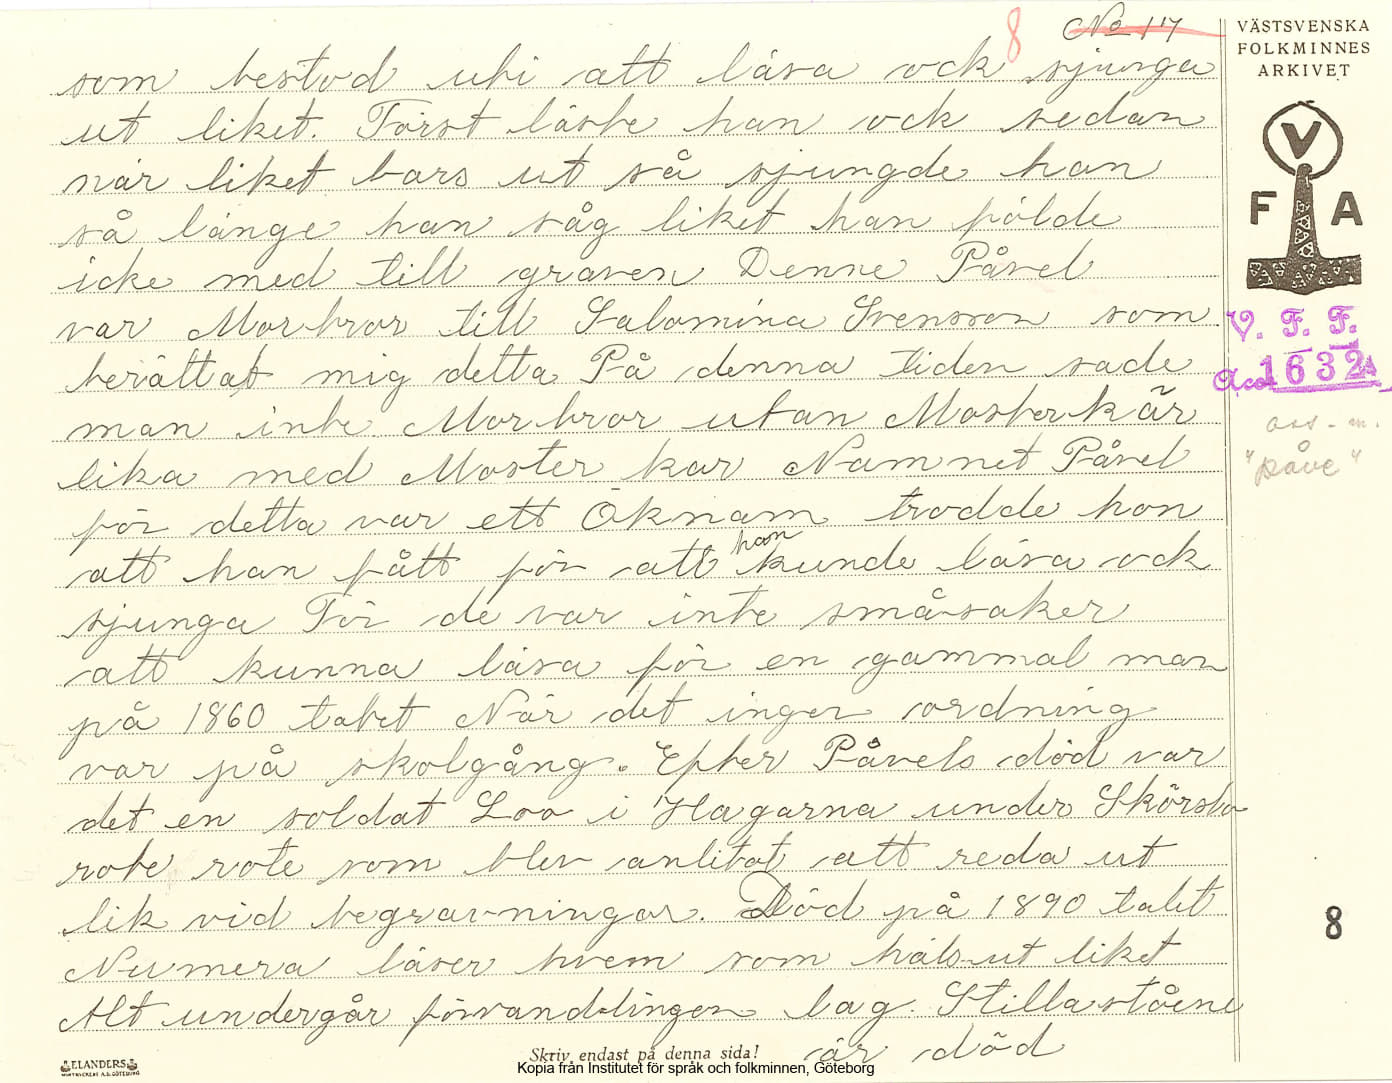 8 No 117
VÄSTSVENSKA
FOLKMINNES
ARKIVET
V
F A
V. F. F.
Acc. 1632
"påve"
som bestod uti att läsa ock sjunga
ut liket. Först läste han ock sedan
när liket bars ut så sjungde han
så länge han såg liket han földe
icke med till graven Denne Påvel
var Morbror till Salomina Svensson som
berättat mig detta På denna tiden sade
man inte Morbror utan Mosterkär
lika med Moster kar Namnet Påvel
för detta var ett Öknam trodde hon
att han fått för att han kunde läsa ock
sjunga För de var inte småsaker
att kunna läsa för en gammal man
på 1860 talet När det ingen ordning
var på skolgång. Efter Påvels död var
det en soldat Loo i Hagarna under Skörsbo
rote rote som blev anlitat att reda ut
lik vid begravningar. Död på 1890 talet
Numera läser hvem som häls ut liket
Alt undergår förvandlingen lag. Stillaståene
är död
8
ELANDERS
Skriv endast på denna sida!
Kopia från Institutet för språk och folkminnen, Göteborg